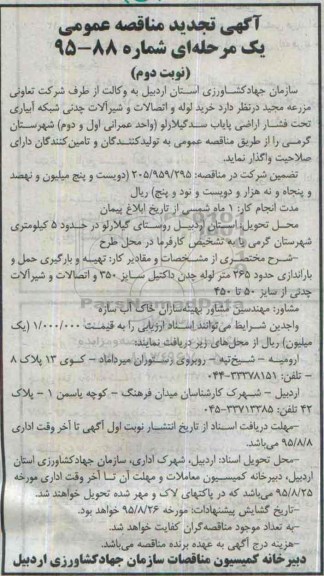 آگهی تجدید مناقصه عمومی
یک مرحله‌ای شماره ۸۸-۹۵
(نوبت دوم)
سازمان جهادکشاورزی استان اردبیل به وکالت از طرف شرکت تعاونی
مزرعه مجید درنظر دارد خرید لوله و اتصالات و شیرآلات چدنی شبکه آبیاری
تحت فشار اراضی پایاب سدگیلارلو (واحد عمرانی اول و دوم) شهرستان
گرمی را از طریق مناقصه عمومی به تولیدکنندگان و تامین‌کنندگان دارای
صلاحیت واگذار نماید.
تضمین شرکت در مناقصه: ۲۰۵/۹۵۹/۲۹۵ (دویست و پنج میلیون و نهصد
و پنجاه و نه هزار و دویست و نود و پنج) ریال
مدت انجام کار: ۱ ماه شمسی از تاریخ ابلاغ پیمان
محل تحویل: استان اردبیل روستای گیلارلو در حدود ۵ کیلومتری
شهرستان گرمی یا به تشخیص کارفرما در محل طرح
-شرح مختصری از مشخصات و مقادیر کار: تهیه و بارگیری حمل و
باراندازی حدود ۲۶۵ متر لوله چدن داکتیل سایز ۳۵۰ و اتصالات و شیرآلات
چدنی از سایز ۵۰ تا ۴۵۰
مشاور: مهندسین مشاور بهینه‌سازان خاک آب سازه
واجدین شرایط می‌توانند اسناد ارزیابی را به قیمت ۱/۰۰۰/۰۰۰ (یک
میلیون) ریال از محل‌های زیر دریافت نمایند:
ارومیه - شیخ‌تپه - روبروی رستوران میرداماد - کوی ۱۳ پلاک ۸
- تلفن: ۳۳۳۷۸۱۵۱-۰۴۴
اردبیل - شهرک کارشناسان میدان فرهنگ - کوچه یاسمن ۱ - پلاک
۴۲ تلفن ۳۳۷۱۳۳۸۵-۰۴۵
-مهلت دریافت اسناد از تاریخ انتشار نوبت اول آگهی تا آخر وقت اداری
۹۵/۸/۸ می‌باشد.
-محل تحویل اسناد: اردبیل، شهرک اداری، سازمان جهادکشاورزی استان
اردبیل، دبیرخانه کمیسیون معاملات و مهلت آن تا آخر وقت اداری مورخه
۹۵/۸/۲۵ می‌باشد که در پاکتهای لاک و مهر شده تحویل خواهند شد.
-تاریخ گشایش پیشنهادات: مورخه ۹۵/۸/۲۶ خواهد بود.
-به تعداد موجود مناقصه‌گران کفایت خواهد شد.
-هزینه درج آگهی به عهده برنده مناقصه می‌باشد.
دبیرخانه کمیسیون مناقصات سازمان جهادکشاورزی اردبیل